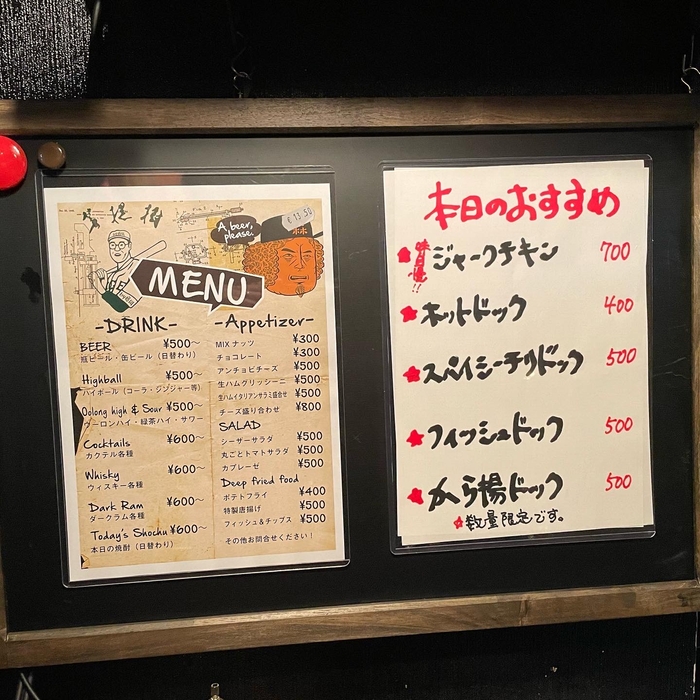 A beer,
please.
€13.50
MENU
-DRINK-
BEER ¥500～
瓶ビール・缶ビール（日替わり）
Highball ¥500～
ハイボール（コーラ・ジンジャー等）
Oolong high & Sour ¥500～
ウーロンハイ・緑茶ハイ・サワー
Cocktails ¥600～
カクテル各種
Whisky ¥600～
ウィスキー各種
Dark Ram ¥600～
ダークラム各種
Today's Shochu ¥600～
本日の焼酎（日替わり）
-Appetizer-
MIX ナッツ ¥300
チョコレート ¥300
アンチョビチーズ ¥500
生ハムグリッシーニ ¥500
生ハムイタリアンサラミ盛合せ ¥500
チーズ盛り合わせ ¥800
SALAD
シーザーサラダ ¥500
丸ごとトマトサラダ ¥500
カプレーゼ ¥500
Deep fried food
ポテトフライ ¥400
特製唐揚げ ¥500
フィッシュ＆チップス ¥500
その他お問合せください！
本日のおすすめ
ジャークチキン 700
ホットドック 400
スパイシーチリドック 500
フィッシュドック 500
から揚ドック 500
数量限定です。